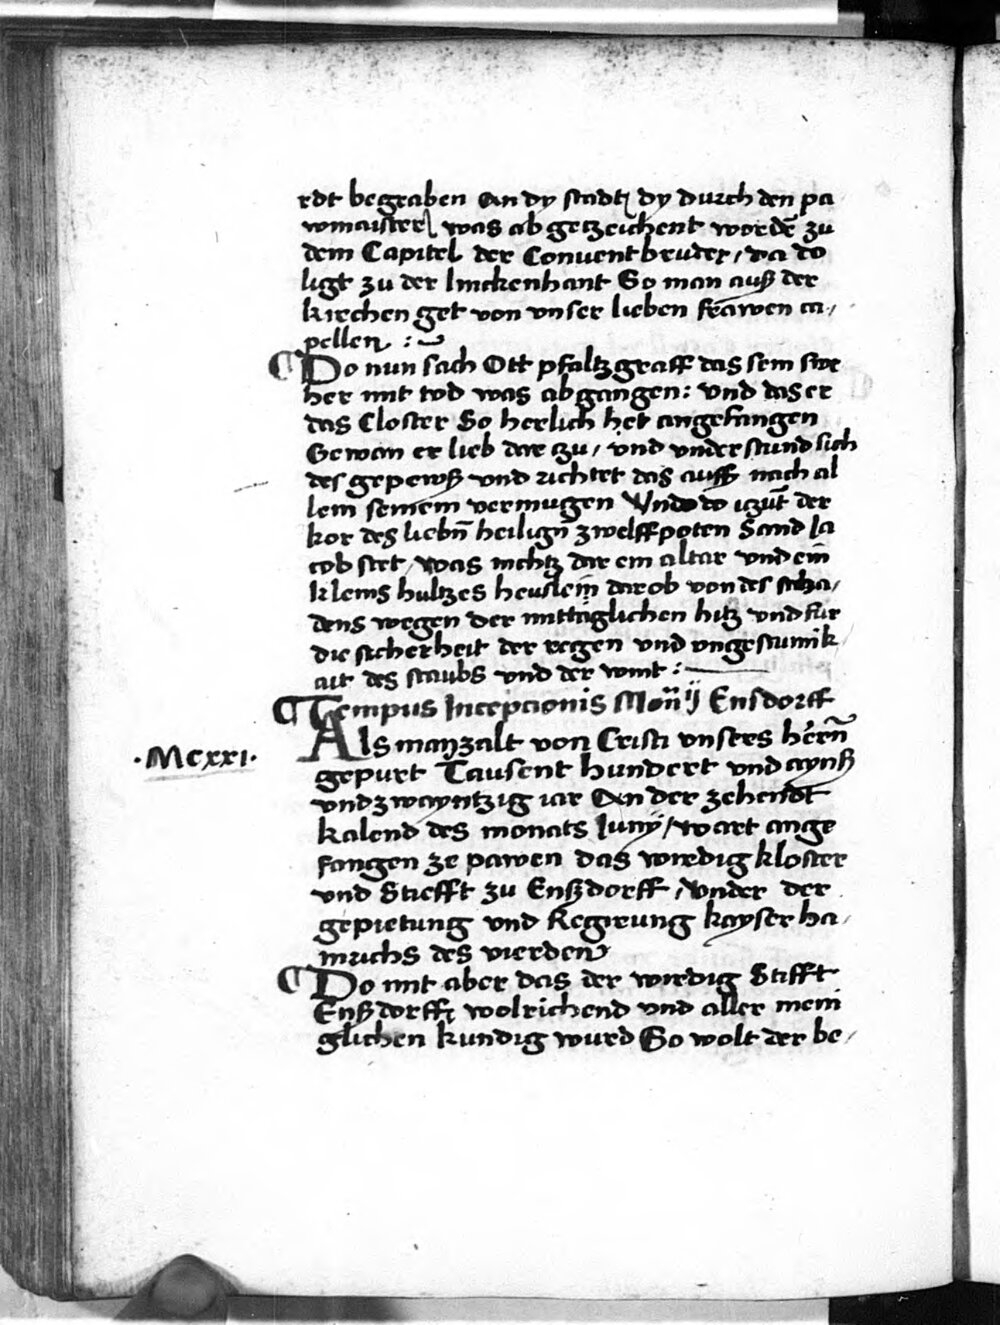 rdt begraben An dy stadt dy durch den pa
wmaister was ab getzeichent wordē zu
dem Capitel der Conuent bruder / da do
ligt zu der linckenhant So man auß der
kirchen get von vnser lieben frawen ca /
pellen :~
¶ Do nun sach Ott pfaltzgraff das sein swe
her mit tod was abgangen : vnd das er
das Closter So herlich het angefangen
Gewan er lieb dar zu / vnd vnderstund sich
des gepews vnd richtet das auff nach al
lem seinem vermugen Vnd do iczūt der
kor des liebn̄ heilign̄ zwelffpoten Sand Ja
cob stet / was nichtz dar ein altar vnd ein
kleins hultzes heuslein darob von des scha /
dens wegen der mittaglichen hitz vnd fur
die sicherheit der regen vnd vngestumik
ait des staubs vnd der wint :
¶ Tempus Incepcionis Mon̄ ij Ensdorff
Als man zalt von Cristi vnsers hern̄
·Mcxxi·
gepurt Tausent hundert vnd ayns
vnd zwayntzig iar An der zehendt
kalend des monats Junij / wart ange
fangen ze pawen das wirdig kloster
vnd Stiefft zu Enßdorff / vnder der
gepietung vnd Regirung kayser ha /
inrichs des vierden
¶ Do mit aber das der wirdig Stifft
Enßdorff wolrichend vnd aller meni
glichen kundig wurd So wolt der be /